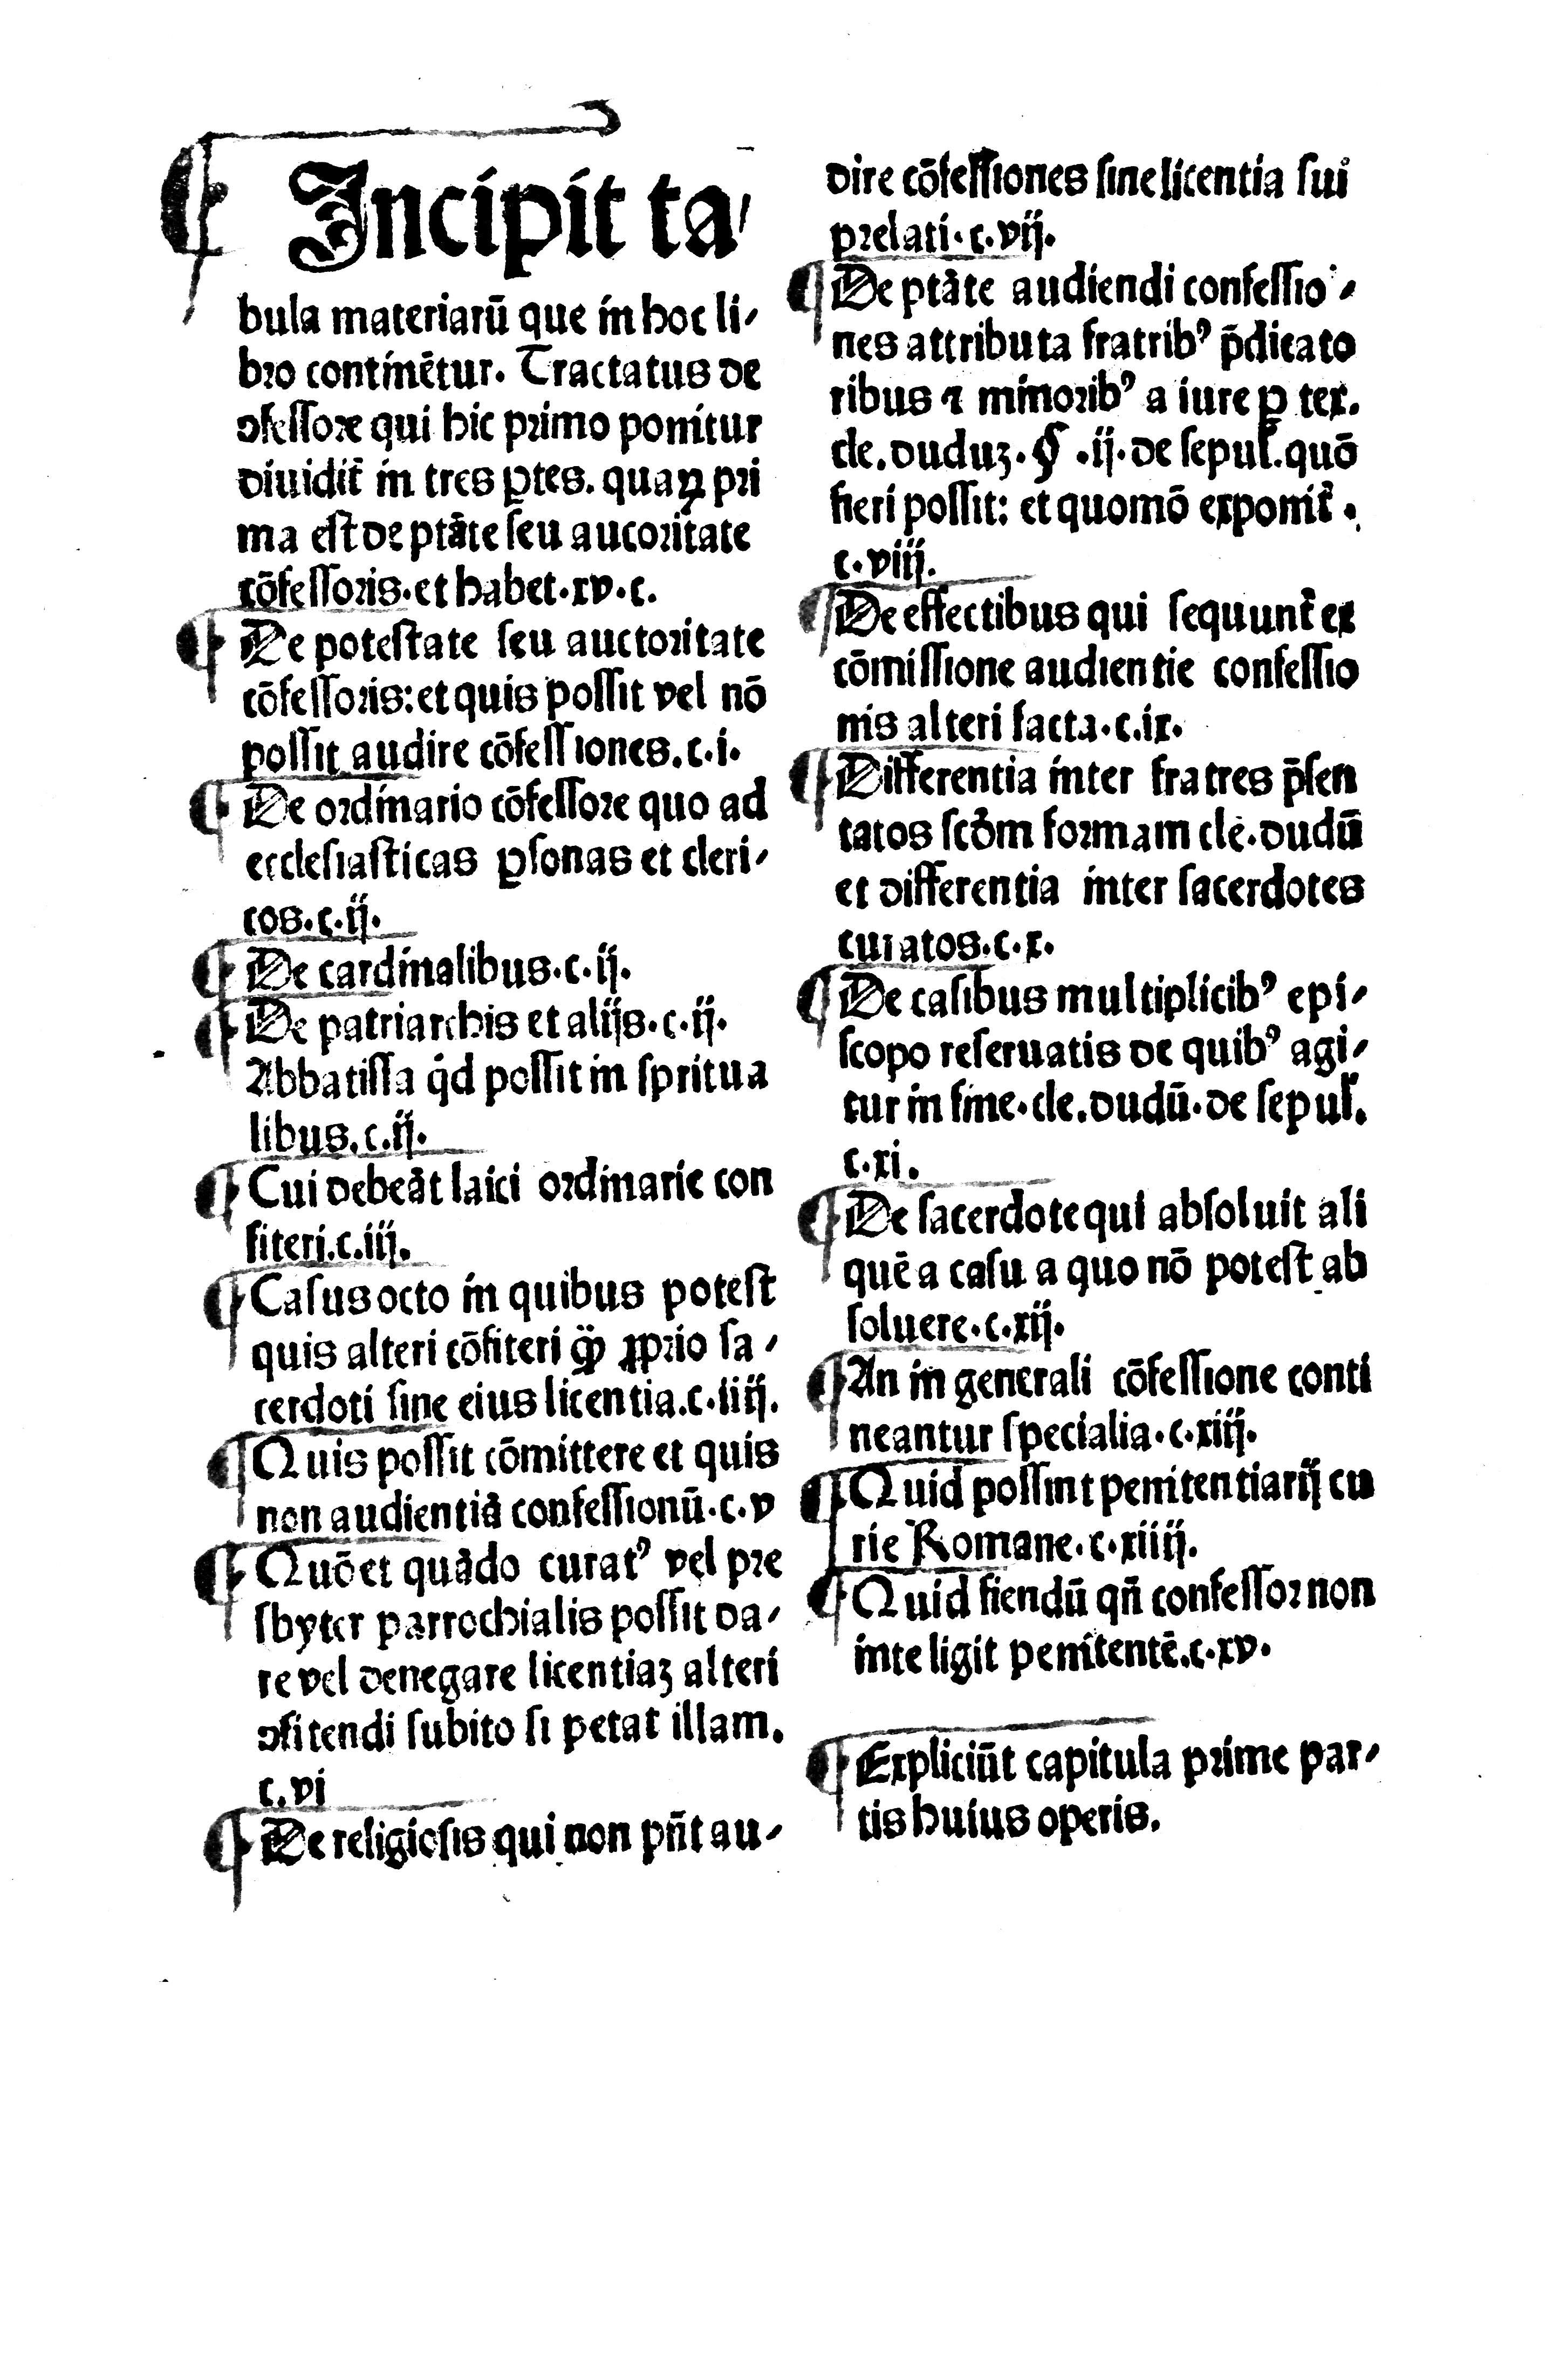 ¶ Incipit ta⸗
bula materiarū que in hoc li⸗
bro continētur. Tractatus de
ↄfessore qui hic primo ponitur
diuidit̄ in tres ꝑtes. quaꝝ pri
ma est de ptāte seu aucoritate
cōfessoris.et habet.xv.c.
¶ De potestate seu auctoritate
cōfessoris:et quis possit vel nō
possit audire cōfessiones.c.i.
¶ De ordinario cōfessore quo ad
ecclesiasticas ꝑsonas et cleri⸗
cos.c.ij.
¶ De cardinalibus.c.ij.
¶ De patriarchis et alijs.c.ij.
Abbatissa qͥd possit in spritua
libus.c.ij.
¶ Cui debeāt laici ordinarie con
fiteri.c.iij.
¶ Casus octo in quibus potest
quis alteri cōfiteri qͣꝫ ꝓprio sa⸗
cerdoti sine eius licentia.c.iiij.
¶ Quis possit cōmittere et quis
non audientiā confessionū.c.v
¶ Quō et quādo curatꝰ vel pre
sbyter parrochialis possit da⸗
re vel denegare licentiaꝫ alteri
ↄfitendi subito si petat illam.
c.vi
¶ De religiosis qui non pn̄t au⸗
dire cōfessiones sine licentia sui
prelati.c.vij.
¶ De ptāte audiendi confessio⸗
nes attributa fratribꝰ p̄dicato
ribus ⁊ minoribꝰ a iure ꝑ tex.
cle.duduꝫ.§.ij.de sepul̄.quō
fieri possit: et quomō exponit̄.
c.viij.
¶ De effectibus qui sequunt̄ ex
cōmissione audientie confessio
nis alteri facta.c.ix.
¶ Differentia inter fratres p̄sen
tatos scd̄m formam cle.dudū
et differentia inter sacerdotes
curatos.c.x.
¶ De casibus multiplicibꝰ epi⸗
scopo reseruatis de quibꝰ agi⸗
tur in fine.cle.dudū.de sepul̄.
c.xi.
¶ De sacerdote qui absoluit ali
quē a casu a quo nō potest ab
soluere.c.xij.
¶ An in generali cōfessione conti
neantur specialia.c.xiij.
¶ Quid possint penitentiarij cu
rie Romane.c.xiiij.
¶ Quid fiendū qn̄ confessor non
inteligit penitentē.c.xv.
¶ Expliciūt capitula prime par⸗
tis huius operis.